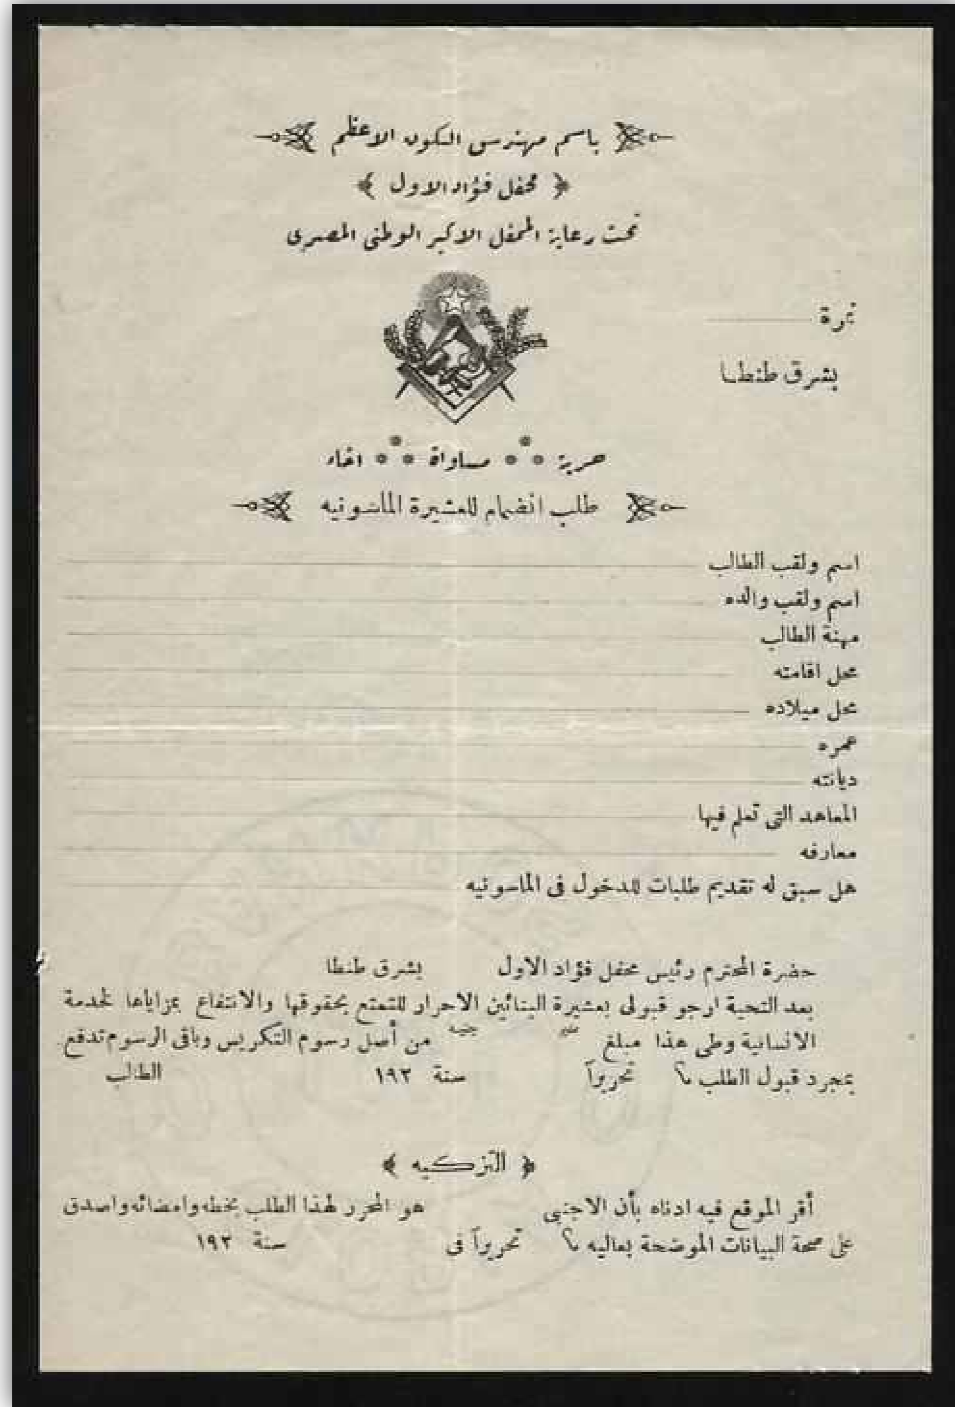 باسم مهندس الكون الاعظم
محفل فؤاد الاول
تحت رعاية المحفل الاكبر الوطنى المصرى
نمرة
بشرق طنطا
حرية مساواة اخاء
طلب انضمام للعشيرة الماسونيه
اسم ولقب الطالب
اسم ولقب والده
مهنة الطالب
محل اقامته
محل ميلاده
عمره
ديانته
المعاهد التى تعلم فيها
معارفه
هل سبق له تقديم طلبات للدخول فى الماسونيه
حضرة المحترم رئيس محفل فؤاد الاول بشرق طنطا
بعد التحية ارجو قبولى بعشيرة البنائين الاحرار للتمتع بحقوقها والانتفاع بمزاياها لخدمة
الانسانية وطى هذا مبلغ مليم جنيه من أصل رسوم التكريس وباقى الرسوم تدفع
بمجرد قبول الطلب تحريراً سنة ١٩٣ الطالب
التزكيه
أقر الموقع فيه ادناه بأن الاجنبى هو المحرر لهذا الطلب بخطه وامضائه واصدق
على صحة البيانات الموضحة بعاليه تحريراً فى سنة ١٩٣